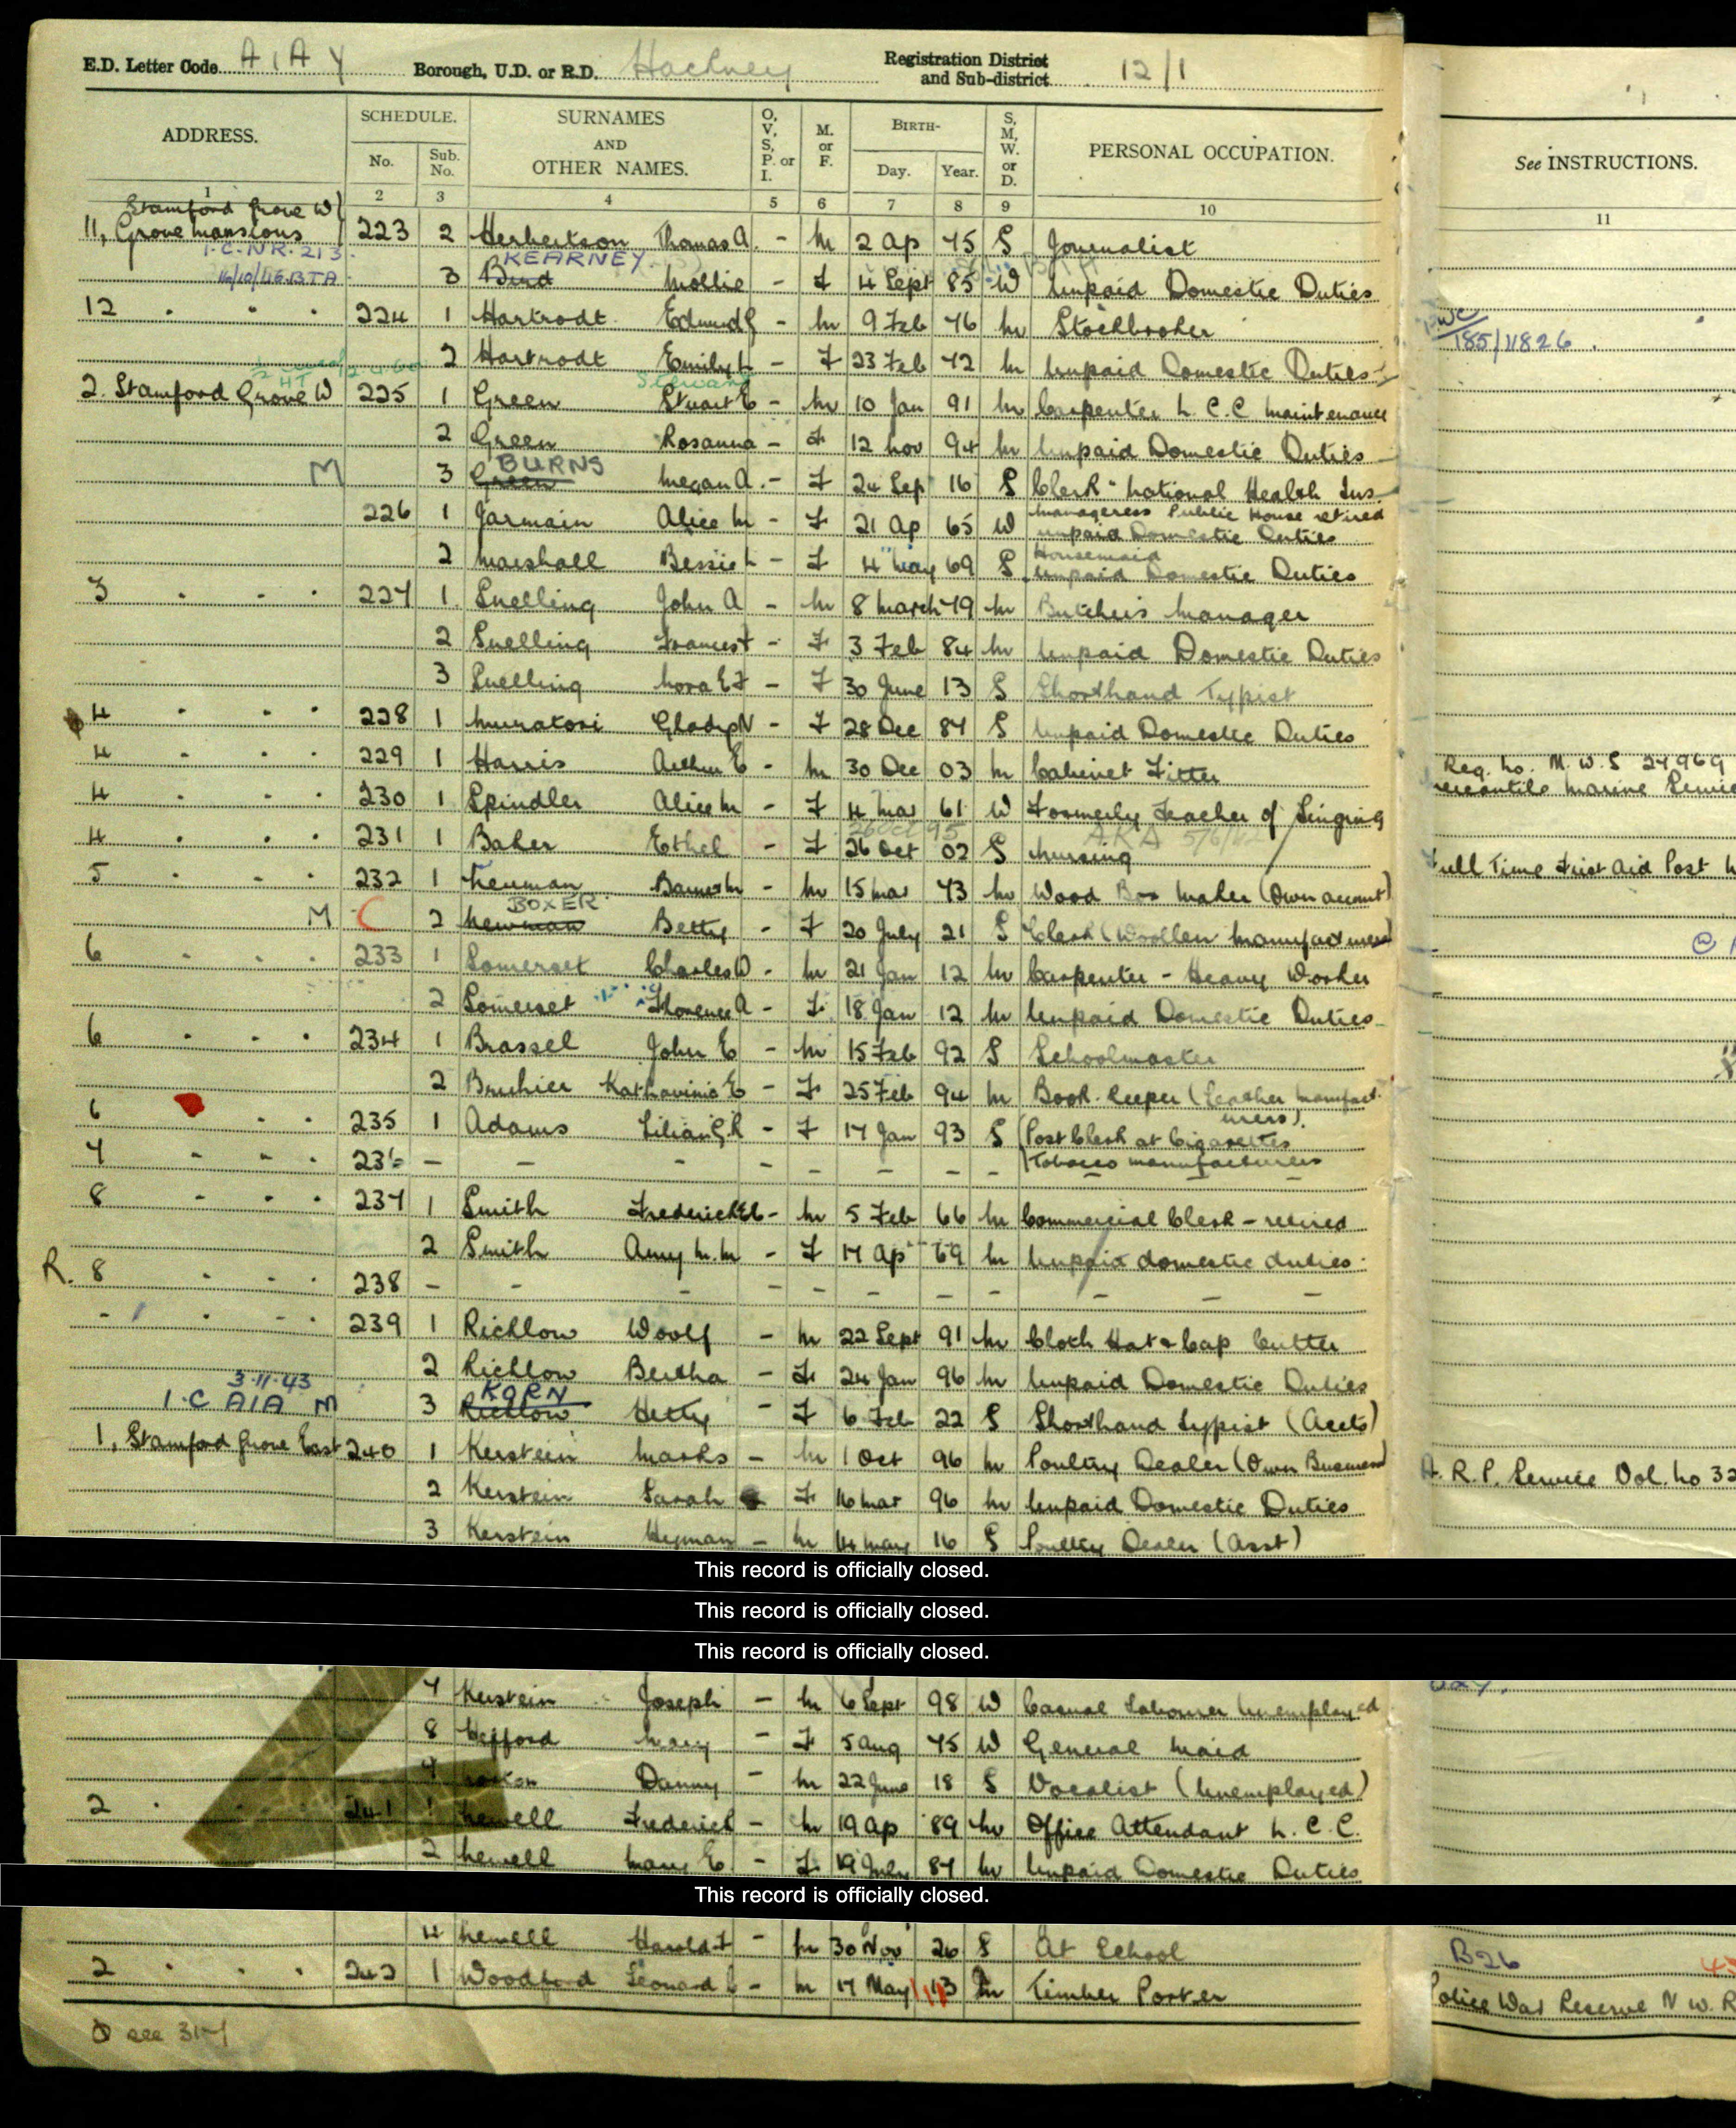 E.D. Letter Code AIAY Borough, U.D. or R.D. Hackney Registration District and Sub-district 12/1
ADDRESS. SCHEDULE. No. Sub. No. SURNAMES AND OTHER NAMES. O, V, S, P. or I. M. or F. BIRTH- Day. Year. S, M, W. or D. PERSONAL OCCUPATION. See INSTRUCTIONS.
1 2 3 4 5 6 7 8 9 10 11
Stamford Grove W
11, Grove Mansions 223 2 Herbertson Thomas A. - M 2 Ap 75 S Journalist
I.C.NR.213. KEARNEY
16/10/46.BTA 3 Bird Mollie - F 14 Sept 85 W Unpaid Domestic Duties
12 " " " 224 1 Hartrodt Edmund G - M 9 Feb 76 M Stockbroker
185/11826.
2 Hartrodt Emily L - F 23 Feb 72 M Unpaid Domestic Duties
2. Stamford Grove W 225 1 Green Stuart E - M 10 Jan 91 M Carpenter L.C.C Maintenance
2 Green Rosanna - F 12 Nov 94 M Unpaid Domestic Duties
BURNS
M 3 Green Megan A. - F 24 Sep 16 S Clerk - National Health Ins.
226 1 Jarmain Alice M - F 21 Ap 65 W Manageress Public House retired
Unpaid Domestic Duties
Housemaid
2 Marshall Bessie L - F 4 May 69 S Unpaid Domestic Duties
3 " " " 227 1 Snelling John A - M 8 March 79 M Butcher's Manager
2 Snelling Frances F - F 3 Feb 84 M Unpaid Domestic Duties
3 Snelling Nora E F - F 30 June 13 S Shorthand Typist
4 " " " 228 1 Muratori Gladys N - F 28 Dec 87 S Unpaid Domestic Duties
4 " " " 229 1 Harris Arthur E - M 30 Dec 03 M Cabinet Fitter Reg. No. M.W.S 27969
Mercantile Marine Service
4 " " " 230 1 Spindler Alice M - F 14 Mar 61 W Formerly Teacher of Singing
26 Oct 95
4 " " " 231 1 Baker Ethel - F 26 Oct 02 S Nursing Full Time First Aid Post
5 " " " 232 1 Newman Barnet M - M 15 Mar 73 M Wood Box Maker (Own account)
BOXER
M C 2 Newman Betty - F 20 July 21 S Clerk (Woollen Manufacturers)
6 " " " 233 1 Somerset Charles W - M 21 Jan 12 M Carpenter - Heavy Worker
2 Somerset Florence A - F 18 Jan 12 M Unpaid Domestic Duties
6 " " " 234 1 Brassel John E - M 15 Feb 92 S Schoolmaster
2 Bruhier Katharine E - F 25 Feb 94 M Book-keeper (Leather Manufacturers).
6 " " 235 1 Adams Lilian G.R - F 17 Jan 93 S (Post Clerk at Cigarettes
7 " " " 236 - - - - - - - - (Tobacco Manufacturers
8 " " " 237 1 Smith Frederick E C - M 5 Feb 66 M Commercial Clerk - retired
2 Smith Amy M.M - F 17 Ap 69 M Unpaid domestic duties
R. 8 " " " 238 - - - - - - - - - - -
" " " " 239 1 Richlow Woolf - M 22 Sept 91 M Cloth Hat & Cap Cutter
2 Richlow Bertha - F 24 Jan 96 M Unpaid Domestic Duties
3.11.43 KORN
I.C AIA M 3 Richlow Hetty - F 6 Feb 22 S Shorthand Typist (Accts)
1, Stamford Grove East 240 1 Kerstein Marks - M 1 Oct 96 M Poultry Dealer (Own Business) A.R.P. Service Vol. No 32
2 Kerstein Sarah F 16 Mar 96 M Unpaid Domestic Duties
3 Kerstein Hyman - M 14 May 16 S Poultry Dealer (Asst)
This record is officially closed.
This record is officially closed.
This record is officially closed.
7 Kerstein Joseph - M 6 Sept 98 W Casual Labourer Unemployed
8 Mary - F 5 Aug 75 W General Maid
9 Danny - M 22 June 18 S Vocalist (Unemployed)
2 " " 241 1 Newell Frederick - M 19 Ap 89 M Office Attendant L.C.C.
2 Newell Mary E - F 19 July 87 M Unpaid Domestic Duties
This record is officially closed.
4 Newell Harold F - M 30 Nov 26 S At School B26
2 " " " 242 1 Woodford Leonard C - M 17 May 13 M Timber Porter Police War Reserve N W.R
see 317